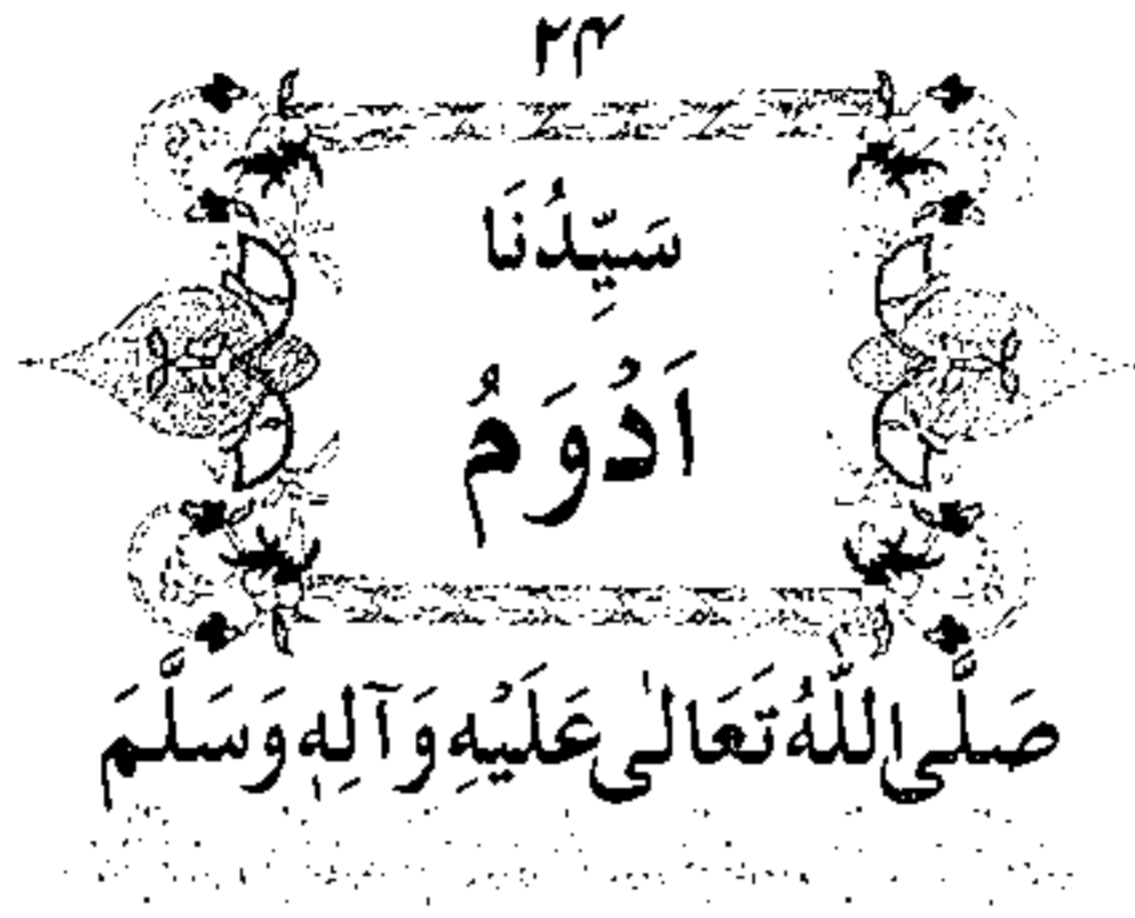 ۲۴
سَيِّدُنَا
اَدْوَمُ
صَلَّى اللّٰهُ تَعَالٰى عَلَيْهِ وَآلِهٖ وَسَلَّمَ